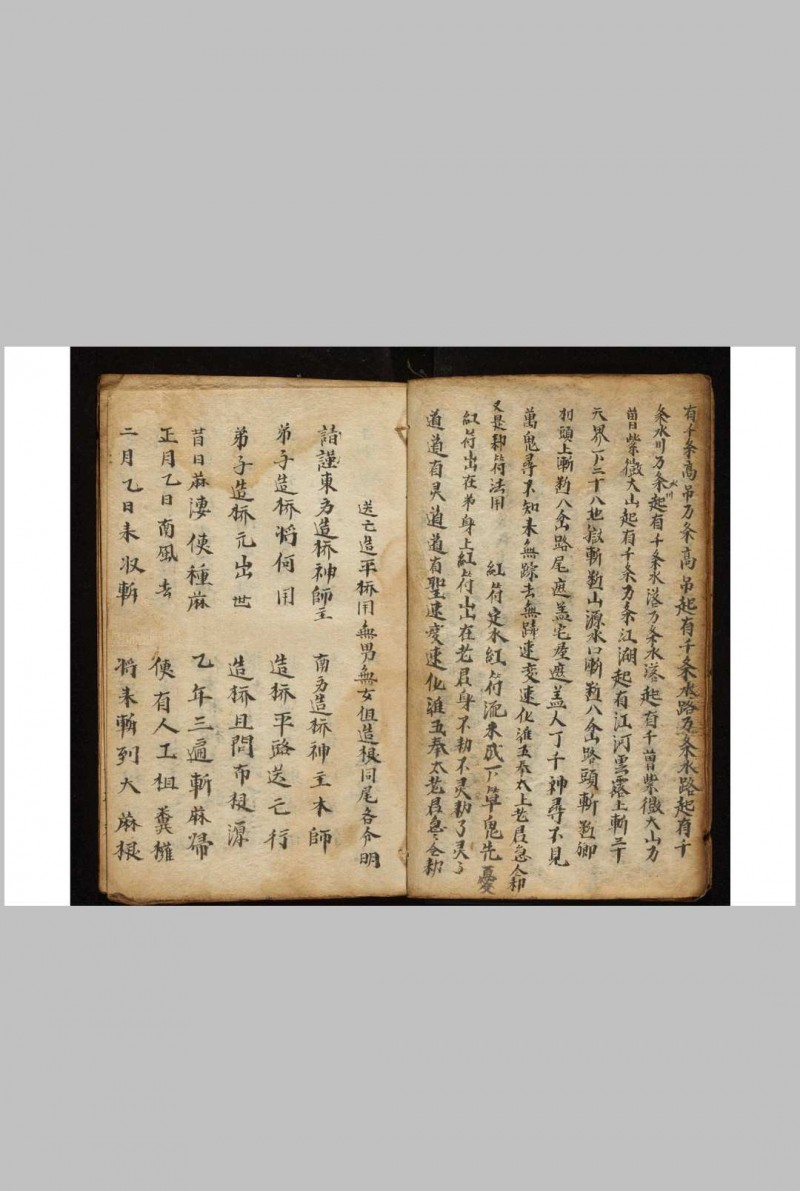 有千条高吊万条高吊起有千条水路万条水路起有千
条水川万条起有千条水落万条水落起有千曽紫微大山万
水川
曽紫微大山起有千条万条江湖起有江河雲露上斬三十
天界下二十八地獄斬斷山源水口斬斷八
路頭斬斷
头上斬斷八
路尾遮盖宅
遮盖人丁千神尋不見
萬鬼尋不知来無踪去無踪速变速化准五奉太上老君急令勅
又是符法用 紅符定水紅符流来底下草鬼先憂
紅符出在弟身上紅符出在老君身不勅不灵勅了灵了
道道有灵道道有聖速变速化准五奉太老君急令勅
送亡造平桥用無男無女但造根同尾各分明
請謹東方造桥神師主 南方造桥神主木師
弟子造桥将何用 造桥平路送亡行
弟子造桥元出世 造桥且問布根源
昔日麻凄使種麻 乙年三遍斬麻歸
正月乙日南風去 便有人工租糞權
二月乙日来收斬 将来斬到大麻根